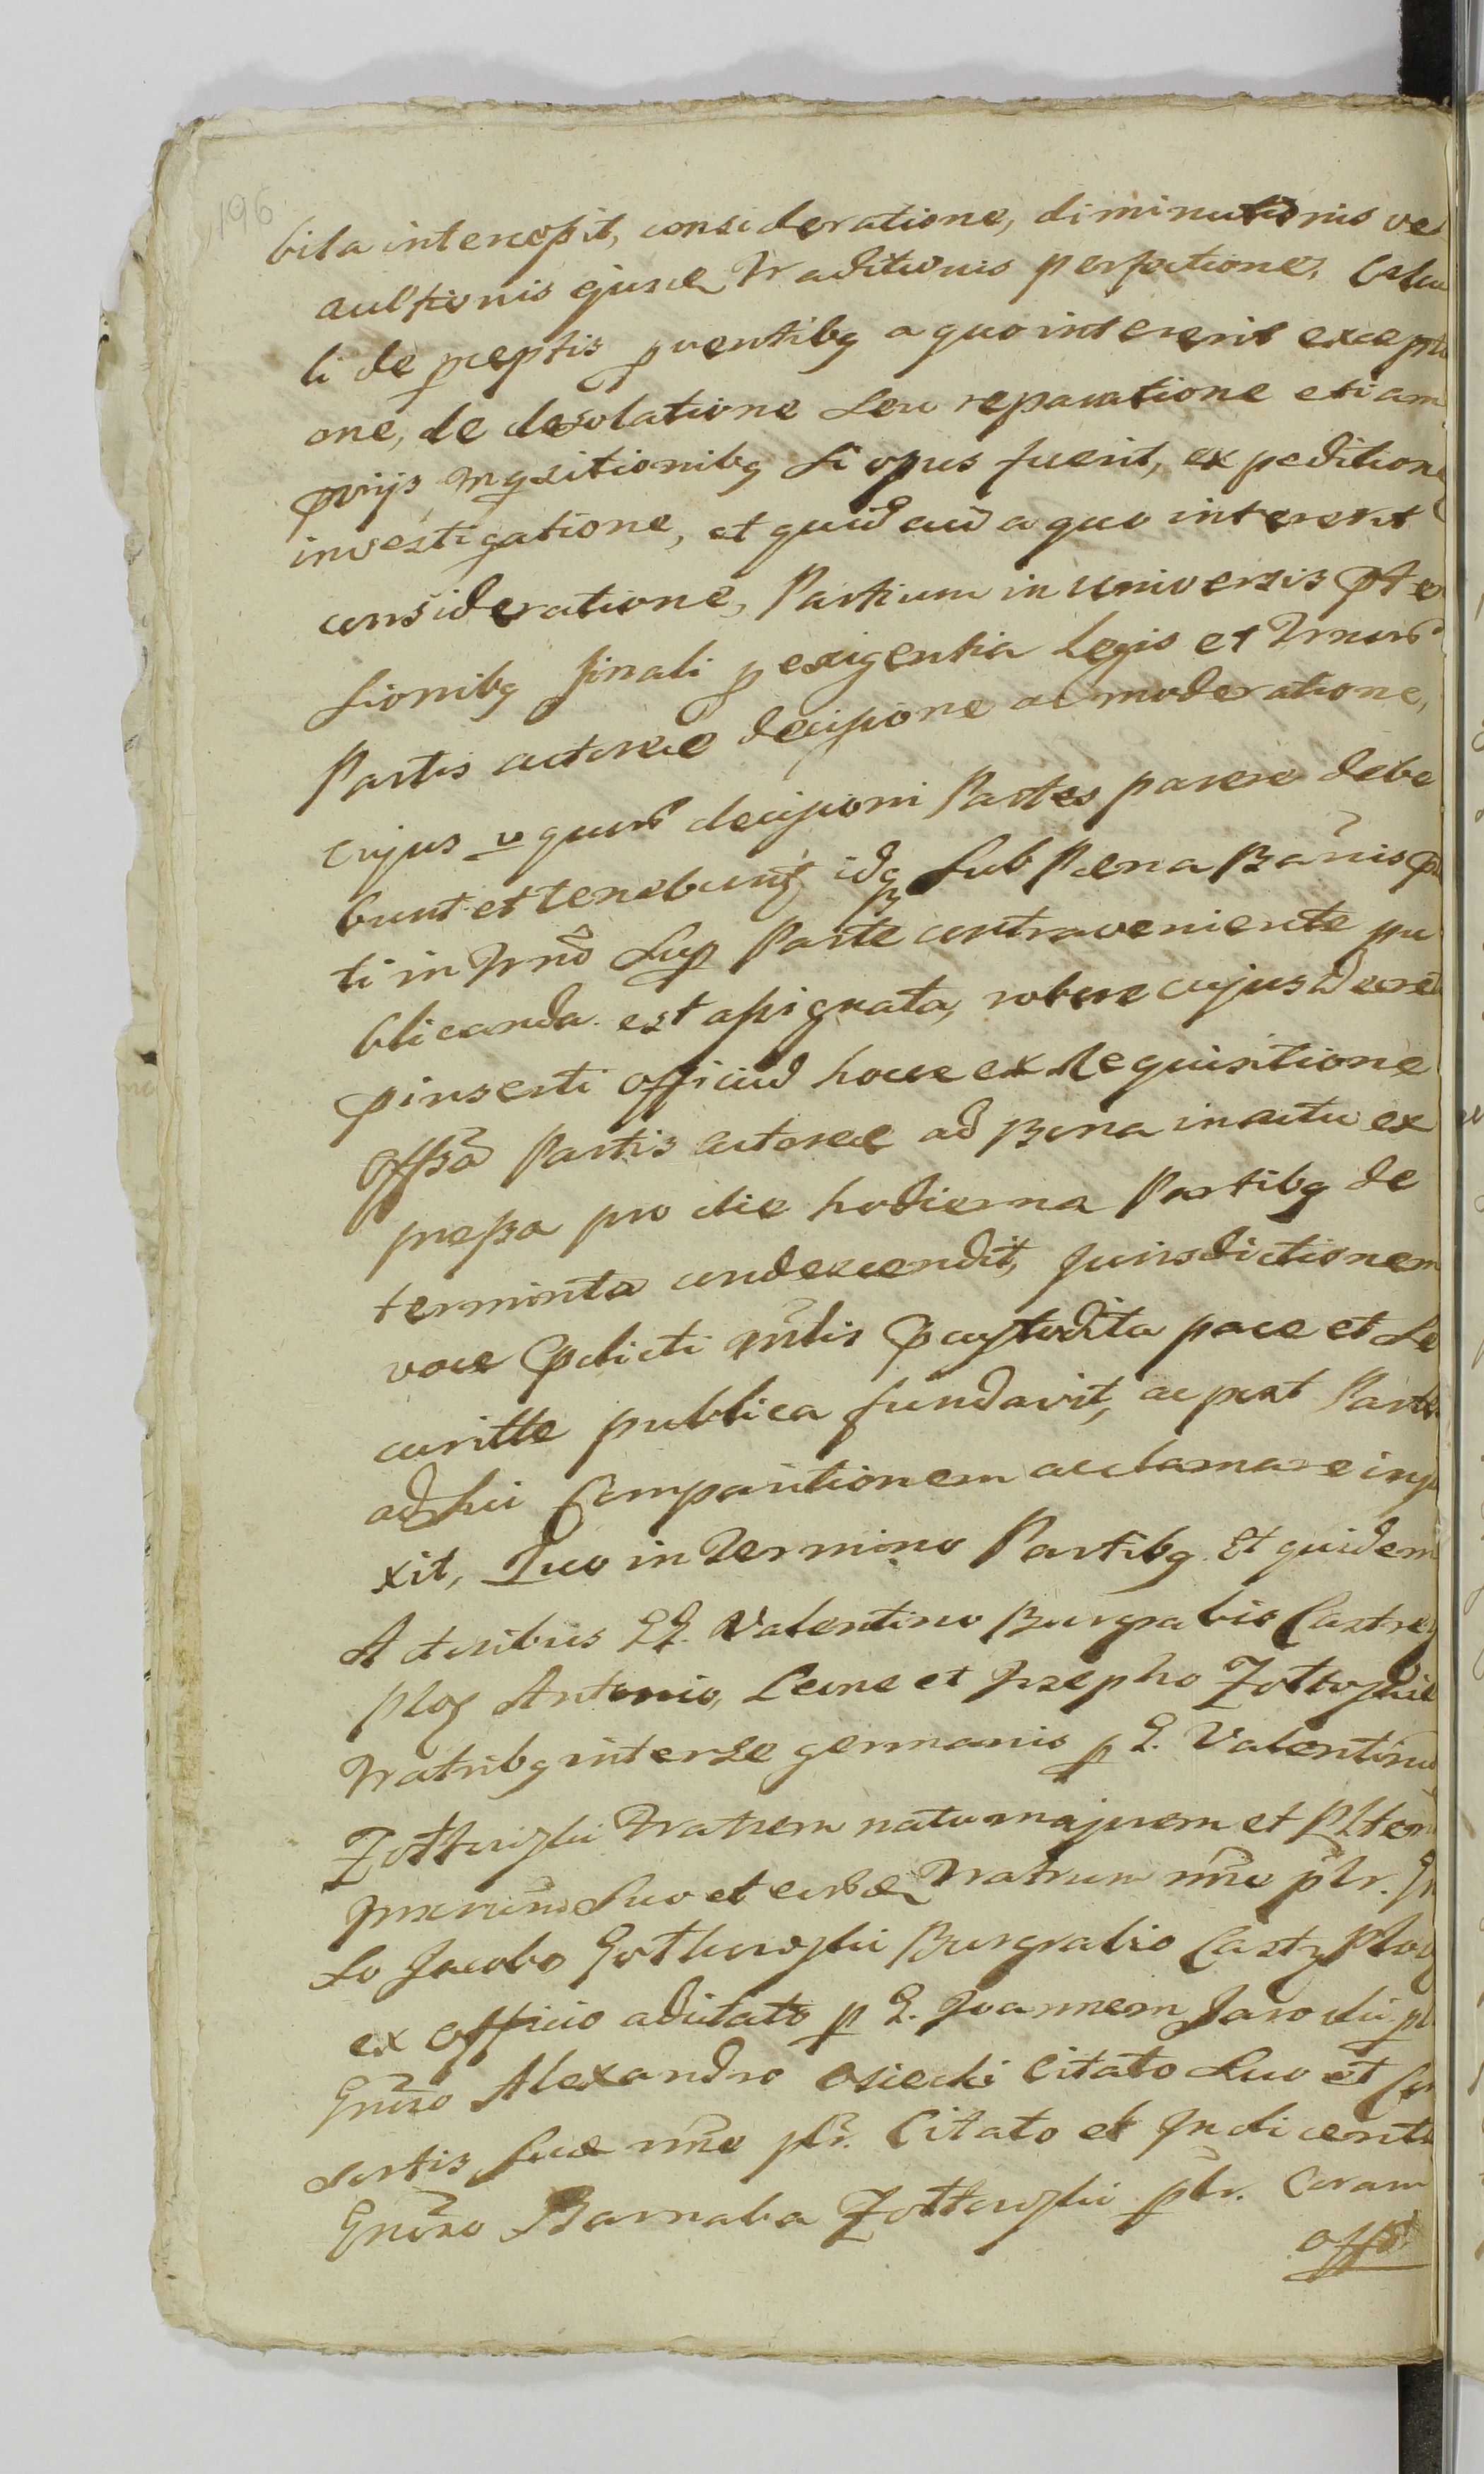 196
bita intercessit, consideratione, diminutionis vel
auctionis ejusdem Traditionis perfectione, Calcu
li de pceptis pventibq a quo intererit excepti
one, de desolatione seu reparatione etiam
pviis inqsitionibq si opus fuerit, expeditione
investigatione, et quid cui a quo intererit
consideratione, Partium in universis pten
sionibq finali p exigentia Legis et
Partis actoreae decisione ac moderatione,
cujus decisioni Partes parere debe
bunt et tenebunt idq sub Paena Bannis
ti in Sup Parte contraveniente pu
blicanda est assignata, robore cujus Decreti
pinserti officiu hocce ex Requisitione
offsa Partis actoreae ad Bona in actu ex
pressa pro die hodierna Partibq de
terminta condescendit, Jurisdictionem
voce pdicti mlis pcustodita pace et se
curitte publica fundavit, ac post Partes
ad sui Comparitionem acclamare inju
xit, Quo in Termino Partibq et quidem
Actoribus GG. Valentino Burgrabio Castren
Ploc Antonio, Leone et Josepho Zottowski
Fratribq inter se germanis p G. Valentinu
Zottowski Fratrem natu majorem et
suo et eorde Fratrum nne plr.
so Jacobo Gotkowski Burgrabio Cast Ploc
ex officio addtato p G. Joannem
Gnoso Alexandro Osiecki Citato suo et Con
sortis suae nne plr. Citato et Indicente
Gnoso Barnaba Zottowski plr. Coram
offo